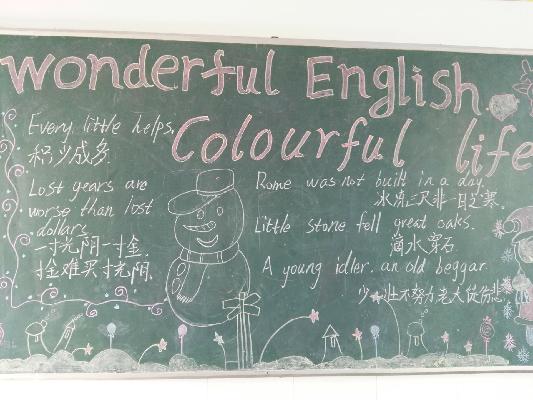 wonderful English
Colourful life
Every little helps.
积少成多
Lost years are
worse than lost
dollars
一寸光阴一寸金
寸金难买寸光阴.
Rome was not built in a day.
冰冻三尺非一日之寒.
Little stone fell great oaks.
滴水穿石
A young idler, an old beggar
少壮不努力老大徒伤悲